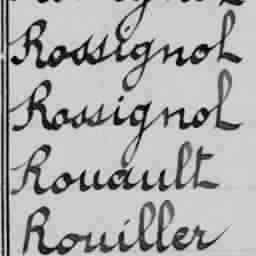 Rossignol
Rossignol
Rouault
Rouiller